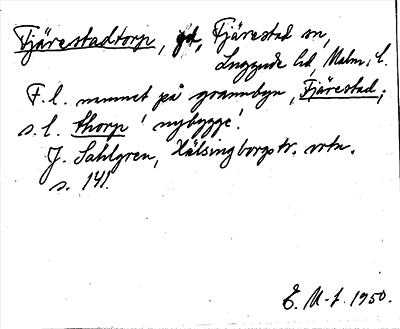 Fjärestadtorp, gd, Fjärestad sn,
Luggude hd, Malm. l.
F.l. namnet på grannbyn, Fjärestad;
s.l. thorp 'nybygge'.
J. Sahlgren, Hälsingborgstr. ortn.
s. 141.
E. M-f. 1950.